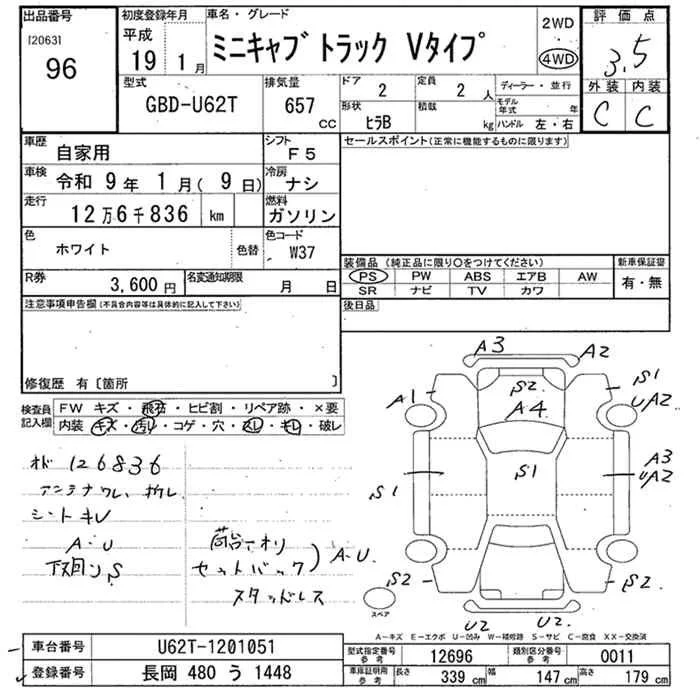 出品番号
[2063]
96
初度登録年月
平成
19 1月
車名・グレード
ミニキャブ トラック Vタイプ
2WD
4WD
評価点
3.5
外装 内装
C C
型式
GBD-U62T
排気量
657 CC
ドア
2
定員
2 人
形状
ヒラB
積載
kg
ディーラー・並行
モデル年式 年
ハンドル 左・右
車歴
自家用
シフト
F5
車検
令和 9年 1月( 9日)
冷房
ナシ
走行
12万6千836 km
燃料
ガソリン
色
ホワイト
色替
色コード
W37
R券
3,600円
名変通知期限
月 日
セールスポイント(正常に機能するものに限ります)
装備品(純正品に限り○をつけてください)
PS PW ABS エアB AW
SR ナビ TV カワ
新車保証書
有・無
注意事項申告欄(不具合内容等は具体的に記入して下さい)
後日品
修復歴 有〔箇所 〕
検査員記入欄
FW キズ・飛石・ヒビ割・リペア跡・×要
内装 キズ・汚レ・コゲ・穴・スレ・キレ・破レ
126836
アンテナ
シートキレ
A・U
S
セットバック
A・U
スタッドレス
A3 A2
S2
A1 A4 S1
UA2
S1 S1 A3
UA2
S2 S2
U2 U2
スペア
A－キズ E－エクボ U－凹み W－補修跡 S－サビ C－腐食 XX－交換済
車台番号
U62T-1201051
登録番号
長岡 480 う 1448
型式指定番号 参考
12696
類別区分番号 参考
0011
車庫証明用 参考
長さ 339 cm 幅 147 cm 高さ 179 cm